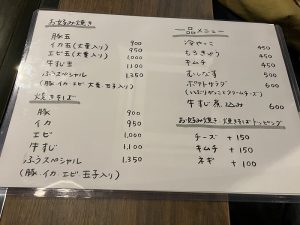 お好み焼き
豚玉 900
イカ玉(大葉入り) 950
エビ玉(大葉入り) 1,000
牛すじ玉 1,100
ふうスペシャル 1,350
(豚 イカ エビ 大葉 玉子入り)
焼きそば
豚 900
イカ 950
エビ 1,000
牛すじ 1,100
ふうスペシャル 1,350
(豚 イカ エビ 玉子入り)
一品メニュー
冷やっこ 450
もろきゅう 450
キムチ 450
むしなす 500
ポテトサラダ 600
(いぶりがっことクリームチーズ)
牛すじ煮込み 600
お好み焼き 焼きそばトッピング
チーズ +150
キムチ +150
ネギ +100